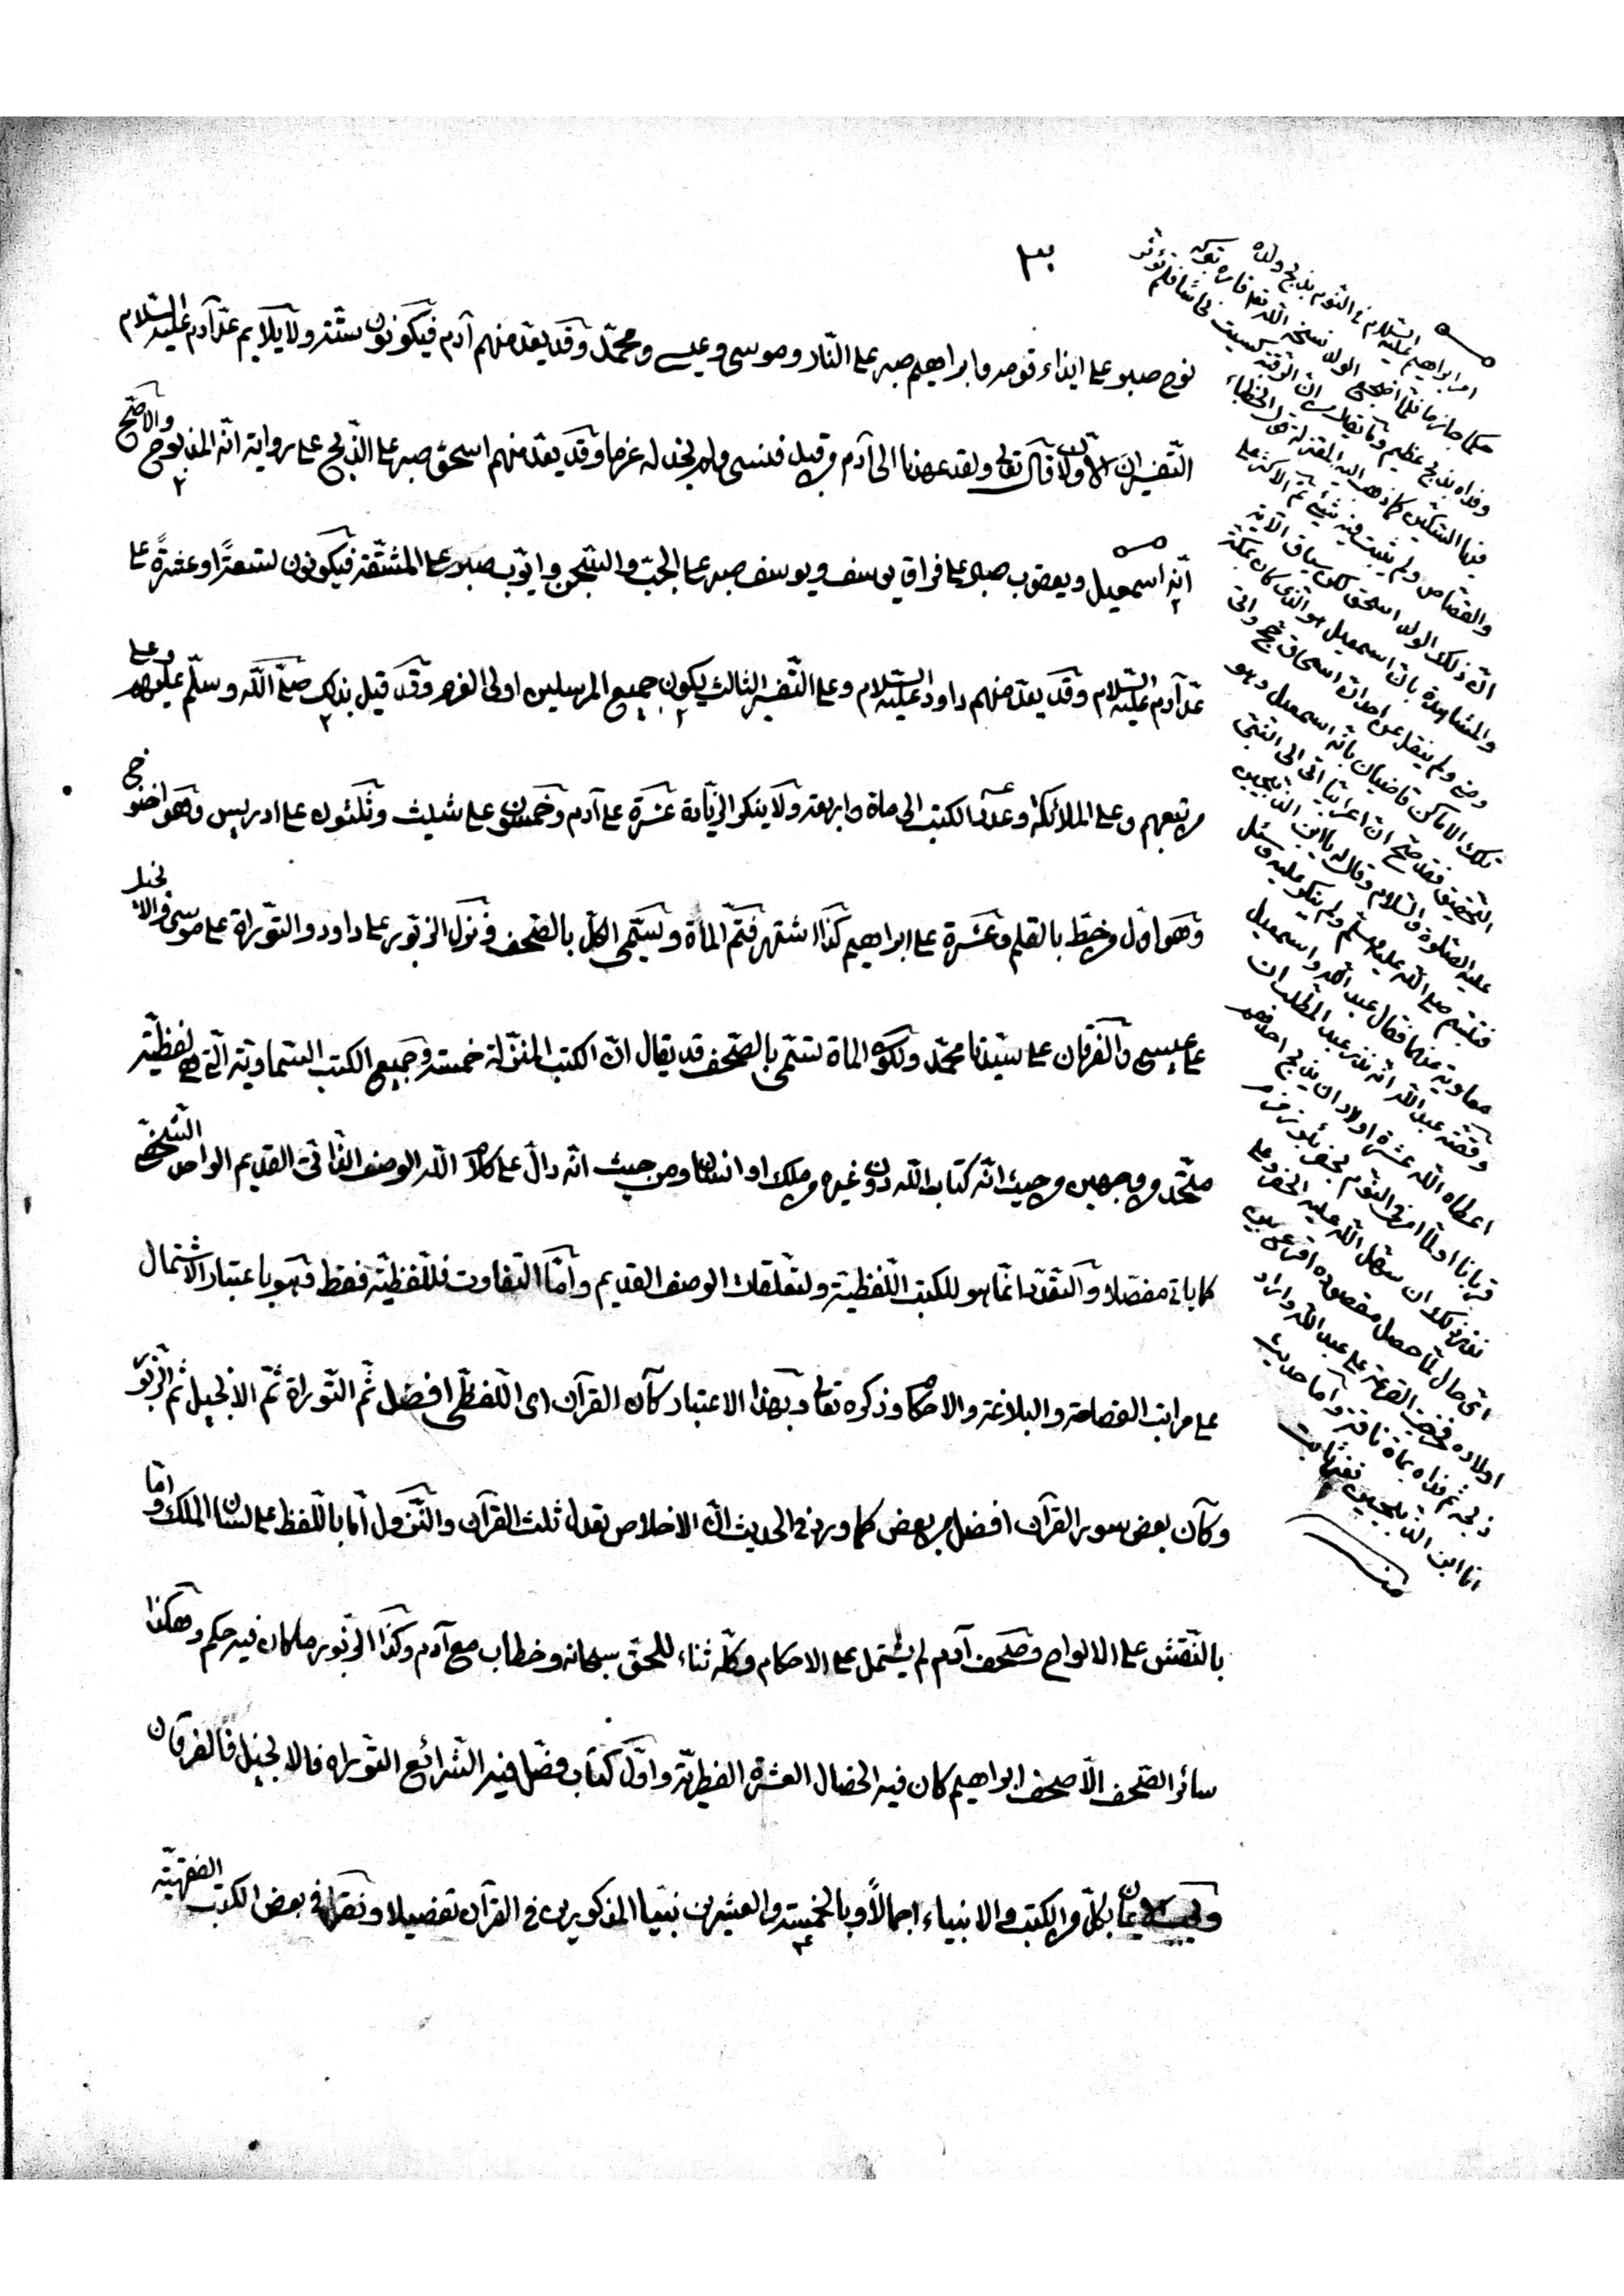 ٣
نوح صبر على ايذاء قومه وابراهيم صبر على النار وموسى وعيسى ومحمّد وقد يعدّ منهم آدم فيكونون ستّة ولا يلايم عدّ آدم عليه السّلام
التفسيران الاولان قال تعالى ولقد عهدنا الى آدم من قبل فنسى ولم نجد له عزما وقد يعدّ منهم اسحق صبر على الذّبح على رواية انّه المذبوح والاصحّ
انّه اسمعيل ويعقوب صبر على فراق يوسف ويوسف صبر على الجبّ والسّجن وايّوب صبر على المشقّة فيكونون تسعةً او عشرةً على
عدّ آدم عليه السّلام وقد يعدّ منهم داود عليه السّلام وعلى التّفسير الثالث يكون جميع المرسلين اولى العزم وقد قيل بذلك صلّى اللّه وسلّم عليهم وعلى
من تبعهم وعلى الملائكة وعدّد الكتب الى مأة واربعة ولا ينكر الزيادة عشرة على آدم وخمسون على شيث وثلثون على ادريس وهو اخنوخ
وهو اوّل من خطّ بالقلم وعشرة على ابراهيم كذا اشتهر فتمّ المأة وتسمّى الكلّ بالصّحف ونزل الزبور على داود والتّوراة على موسى والانجيل
على عيسى والفرقان على سيّدنا محمّد ولكون المأة تسمّى بالصّحف قد يقال انّ الكتب المنزلة خمسة وجميع الكتب السّماويّة الّتى هى لفظيّة
متّحد من وجهين من حيث انّه كتاب اللّه دون غيره من ملك او انسان ومن حيث انّه دالّ على كلام اللّه الوصف الذّاتى القديم الواحد الشّخصىّ
كما ياتى مفصّلا والتّعدّد انّما هو للكتب اللّفظيّة ولتعلّقات الوصف القديم وامّا التفاوت فللّفظيّة فقط وهو باعتبار الاشتمال
على مراتب الفصاحة والبلاغة والاحكام وذكره تعالى وبهذا الاعتبار كان القرآن اى اللّفظىّ افضل ثمّ التّوراة ثمّ الانجيل ثمّ الزّبور
وكان بعض سور القرآن افضل من بعض كما ورد فى الحديث انّ الاخلاص تعدل ثلث القرآن والنّزول امّا باللّفظ على لسان الملك وامّا
بالنّقش على الالواح وصحف آدم لم يشتمل على الاحكام وكلّه ثناء للحقّ سبحانه وخطاب مع آدم وكذا الزّبور ما كان فيه حكم وهكذا
سائر الصّحف الّا صحف ابراهيم كان فيه الخصال العشرة الفطريّة واوّل كتاب فصّل فيه الشّرائع التّوراة فالانجيل فالفرقان
ويجب الايمان بكلّ من الكتب والانبياء اجمالاً وبالخمسة والعشرين نبيّا المذكورين فى القرآن تفصيلا ونقل فى بعض الكتب الفقهيّة
امر ابراهيم عليه السّلام فى النّوم بذبح ولده
حكما جازما فلمّا اضجع الولد نسخه اللّه تعالى
وفداه بذبح عظيم
فيها السّكّين كما ذهب اليه المعتزلة
والقصّاص ولم يثبت فيه شيئ ثمّ الاكثر على
انّ ذلك الولد اسحق لكن سياق الآية
والمشاهدة بانّ اسمعيل هو الّذى كان بمكّة
ولم ينقل عن احد انّ اسحاق حجّ واتى
تلك الاماكن قاضيان بانّه اسمعيل وهو
التّحقيق فقد صحّ انّ اعرابيّا اتى الى النّبىّ
عليه الصّلوة والسّلام وقال له يا ابن الذّبيحين
فتبسّم صلّى اللّه عليه وسلّم ولم ينكر عليه وسئل
معاوية عنهما فقال عبد اللّه واسمعيل
وقصّة عبد اللّه انّه نذر عبد المطّلب ان
اعطاه اللّه عشرة اولاد ان يذبح احدهم
قربانا او لمّا امر فى النّوم بحفر بئر زمزم
نذر ذلك ان سهّل اللّه عليه الحفر وعلى
اىّ حال لمّا حصل مقصوده اقرع بين
اولاده فخرجت القرعة على عبد اللّه واراد
ذبحه ثمّ فداه بمأة ناقة وامّا حديث
انا ابن الذّبيحين فغير ثابت
منه